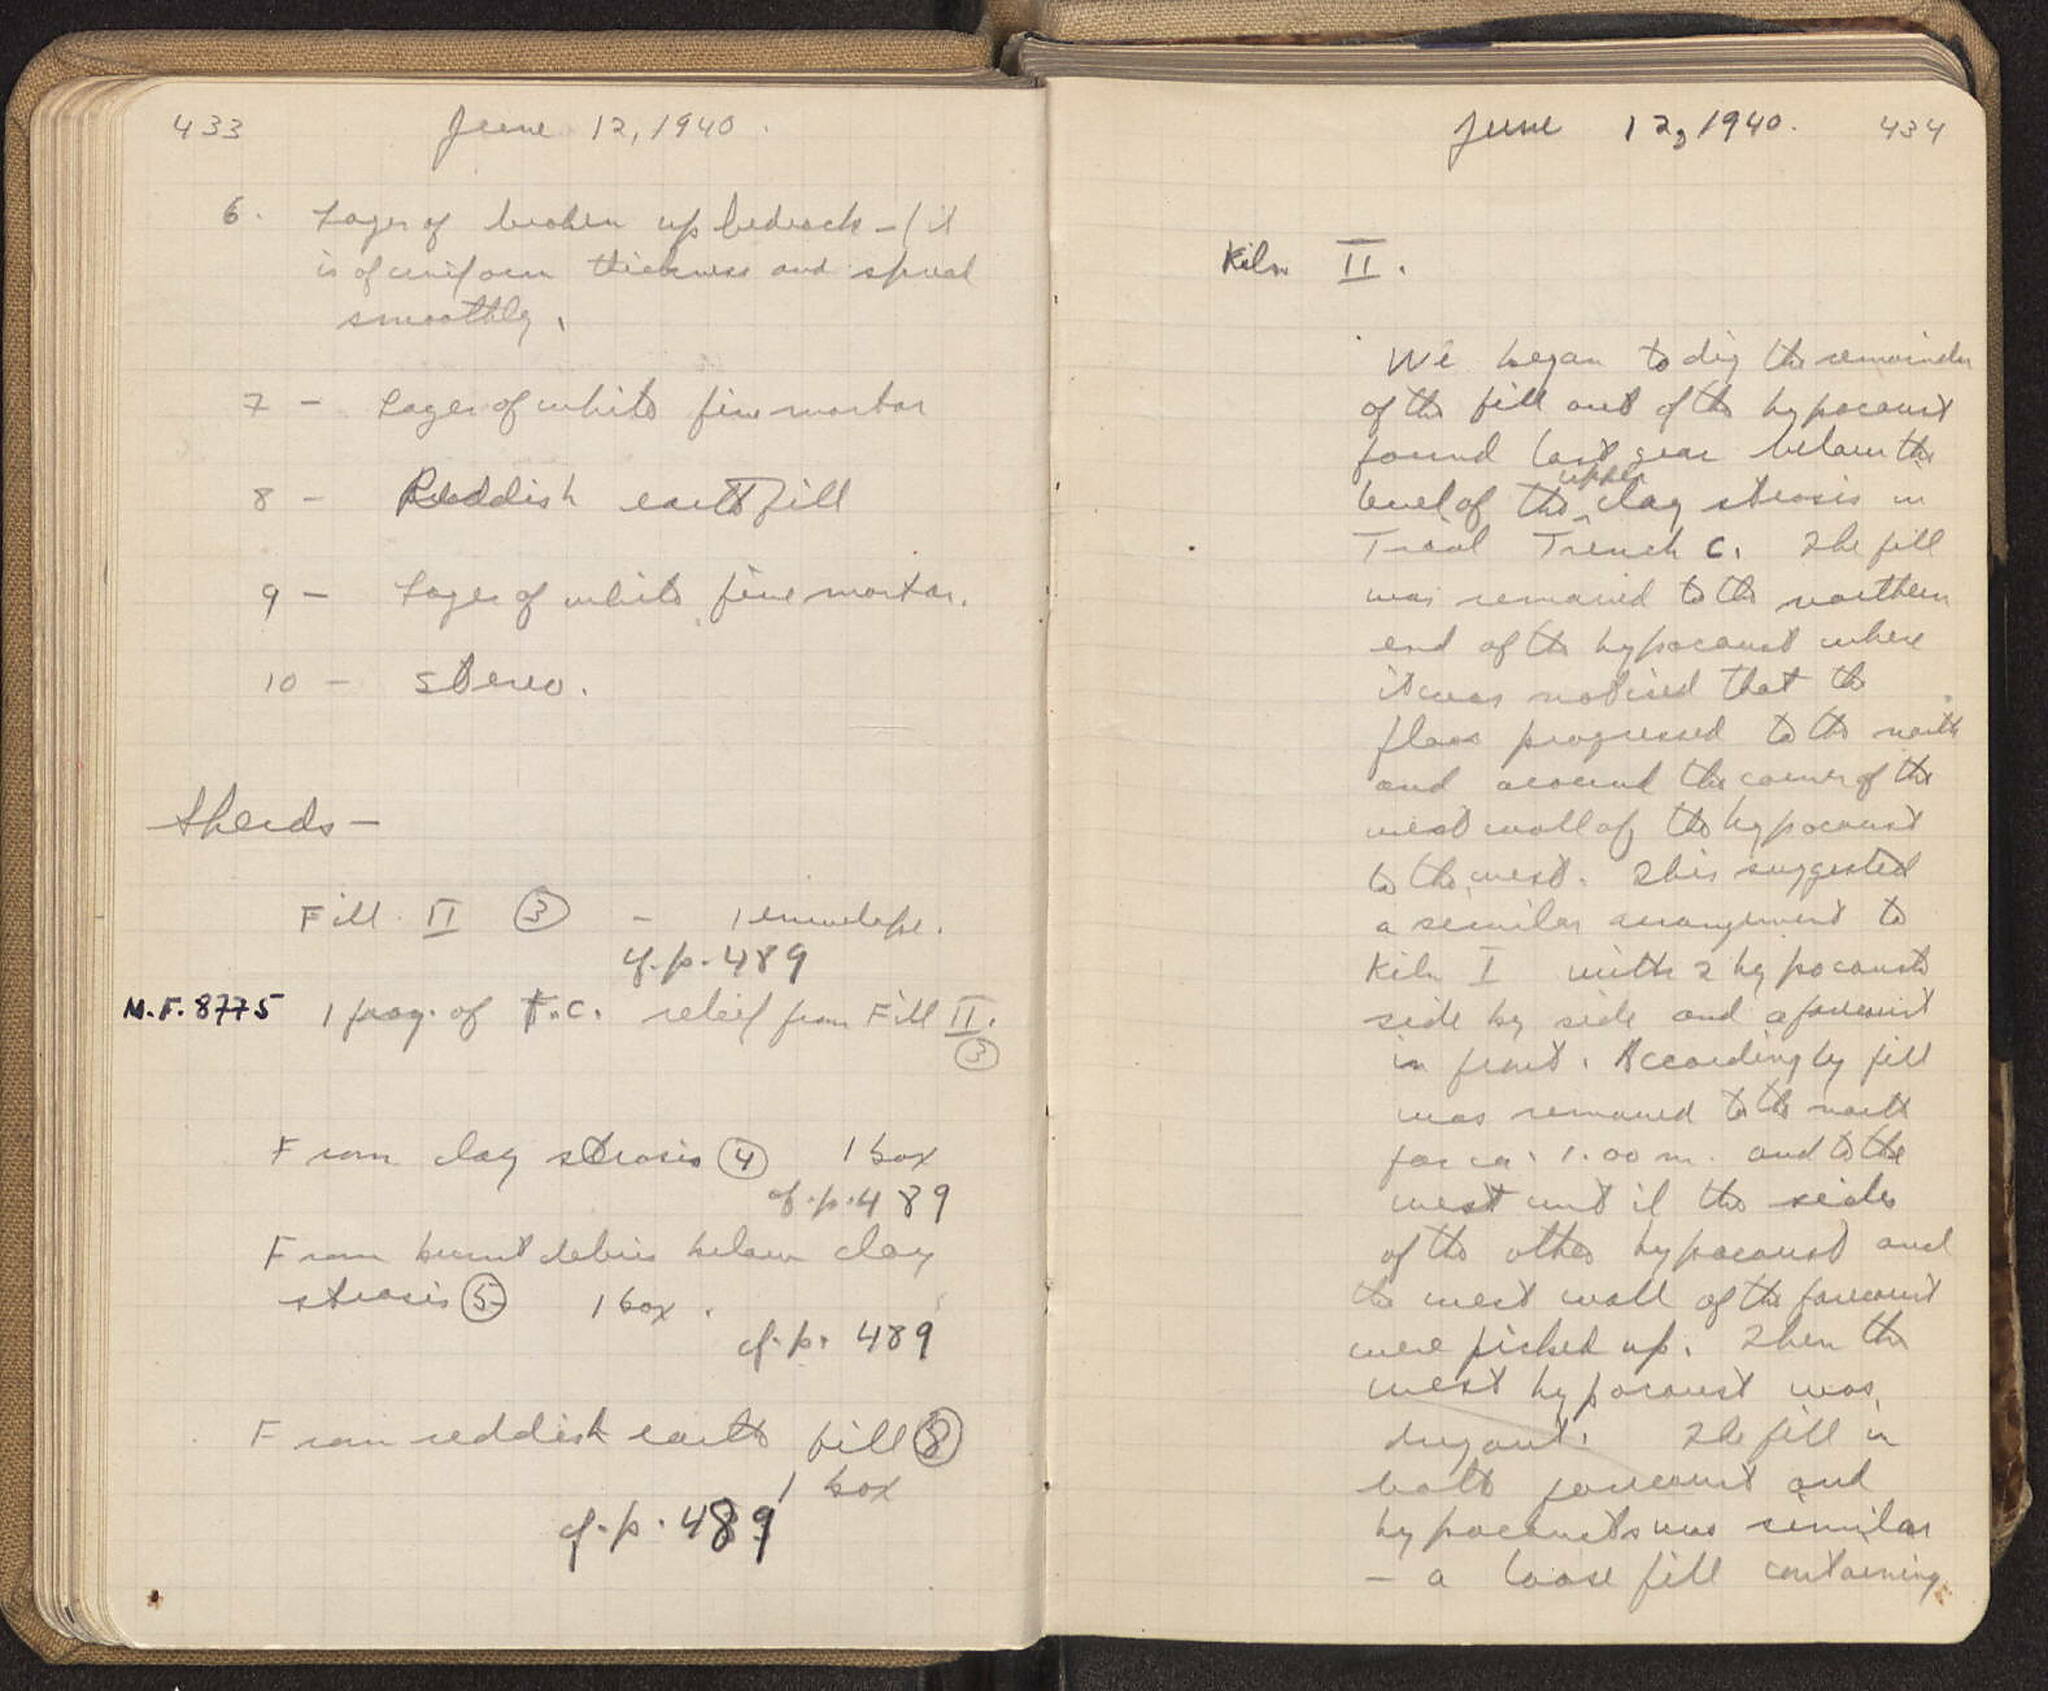 433 June 12, 1940.
6. Layer of broken up bedrock - (it
is of uniform thickness and spread
smoothly.
7 - Layer of white fine mortar
8 - Reddish earth fill
9 - Layer of white fine mortar.
10 - stereo.
Sherds -
Fill II ③ - 1 envelope.
cf. p. 489
M.F. 8775 1 frag. of T.C. relief from Fill II.
③
From clay strosis ④ 1 box
cf. p. 489
From burnt debris below clay
strosis ⑤ 1 box.
cf. p. 489
From reddish earth fill ⑧
1 box
cf. p. 489
June 12, 1940. 434
Kiln II.
We began to dig the remainder
of the fill out of the hypocaust
found last year below the
upper
level of the ^ clay strosis in
Trial Trench C. The fill
was removed to the northern
end of the hypocaust where
it was noticed that the
floor progressed to the north
and around the corner of the
west wall of the hypocaust
to the west. This suggested
a similar arrangement to
Kiln I with 2 hypocausts
side by side and a forecourt
in front. Accordingly fill
was removed to the north
for ca. 1.00 m. and to the
west until the sides
of the other hypocaust and
the west wall of the forecourt
were picked up. Then the
west hypocaust was
dug out. The fill in
both forecourt and
hypocausts was similar
- a loose fill containing